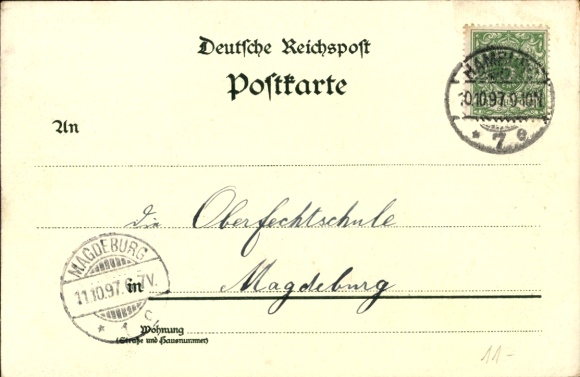 Deutsche Reichspost
Postkarte
HAMBURG
10.10.97.9-10N
* 7 e
An
die Oberfechtschule
MAGDEBURG
11.10.97.6-7V.
* 1 c
in Magdeburg
Wohnung
(Straße und Hausnummer)
11-